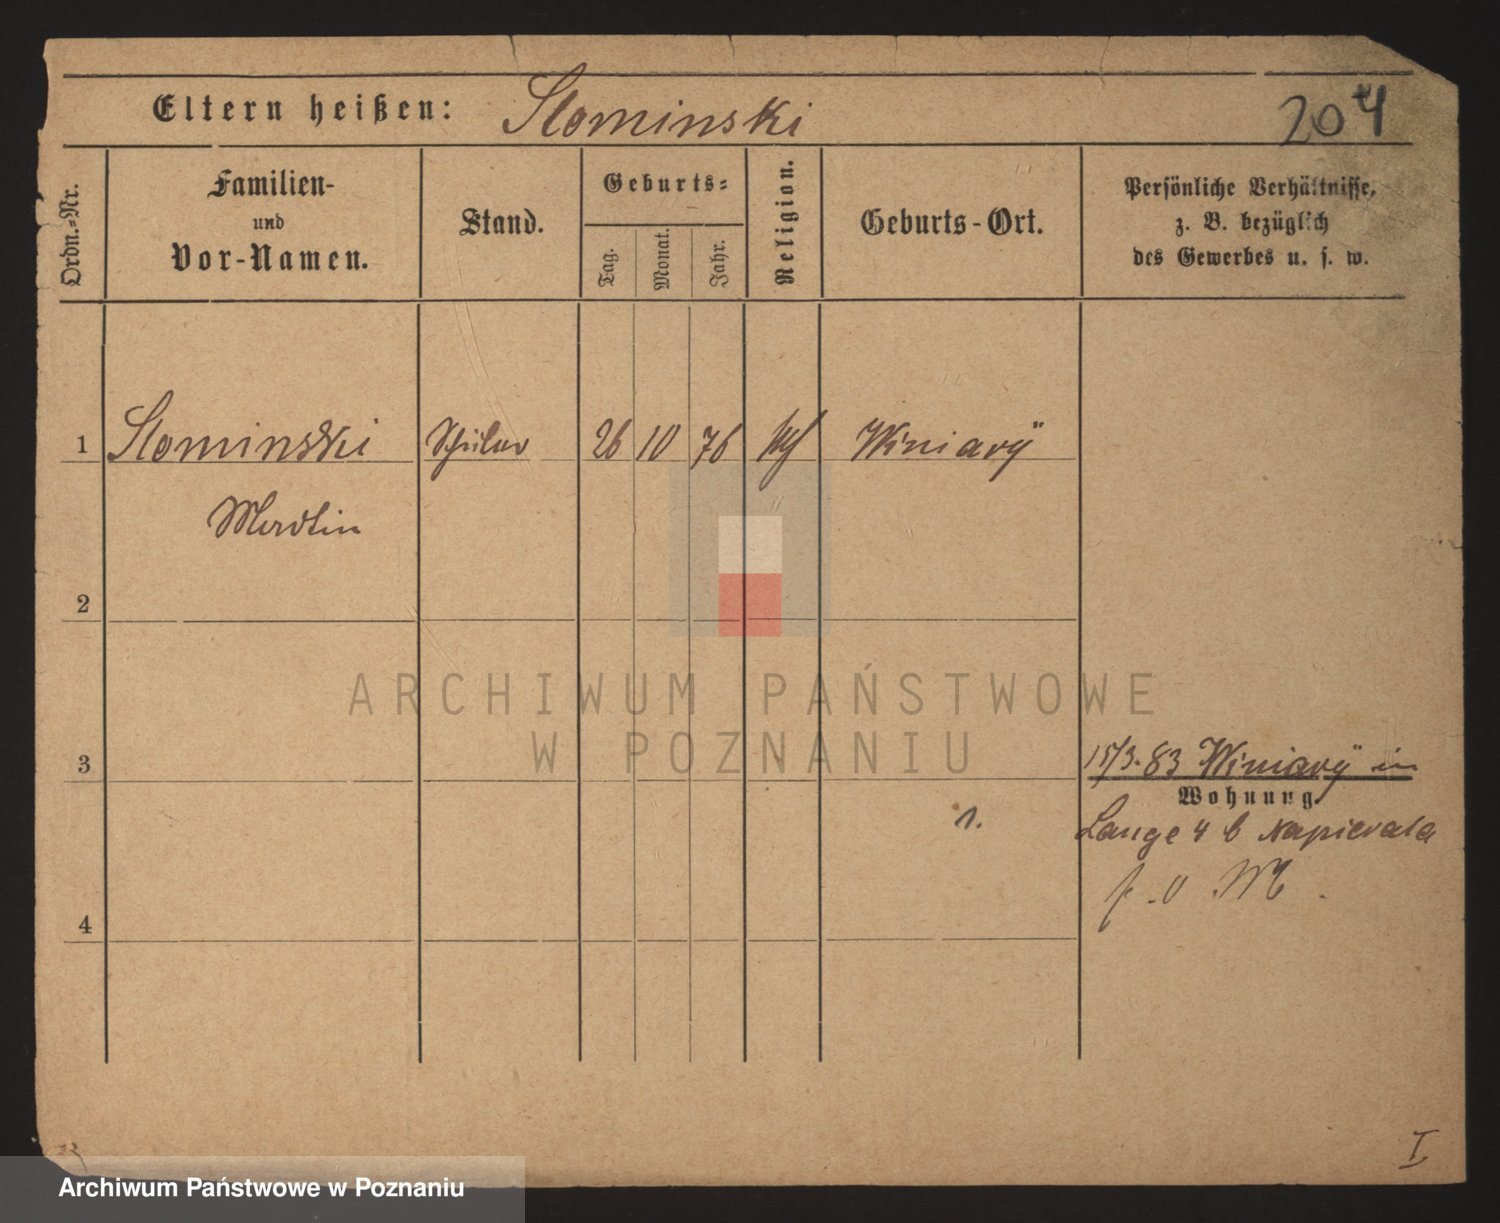 Eltern heißen: Slominski
204
Ordn.-Nr.
Familien-
und
Vor-Namen.
Stand.
Geburts-
Tag.
Monat.
Jahr.
Religion.
Geburts-Ort.
Persönliche Verhältnisse,
z. B. bezüglich
des Gewerbes u. s. w.
1 Slominski Schüler 26 10 76 Winiarÿ
2
3
4
ARCHIWUM PAŃSTWOWE
W POZNANIU
15/3.83 Winiarÿ in
Wohnung.
1.
Lange 4 b
I
Archiwum Państwowe w Poznaniu